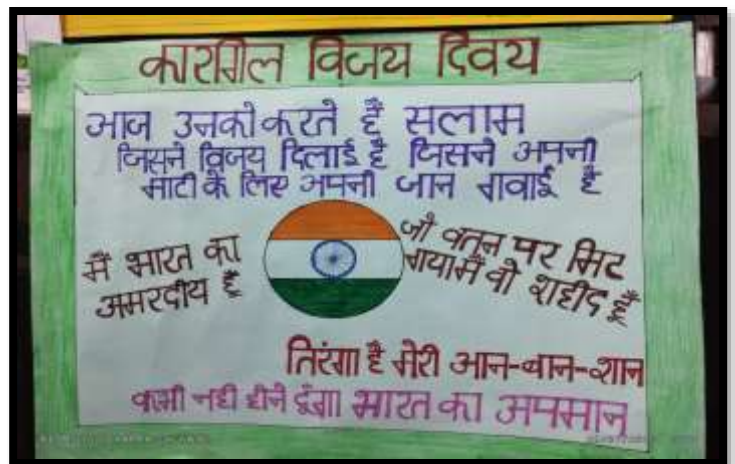 कारगिल विजय दिवय
आज उनको करते हैं सलाम
जिसने विजय दिलाई है जिसने अपनी
माटी के लिए अपनी जान गवाई है
मैं भारत का
अमरदीय हूँ
जो वतन पर मिट
गया मैं वो शहीद हूँ
तिरंगा है मेरी आन-बान-शान
कभी नही होने दुंगा भारत का अपमान